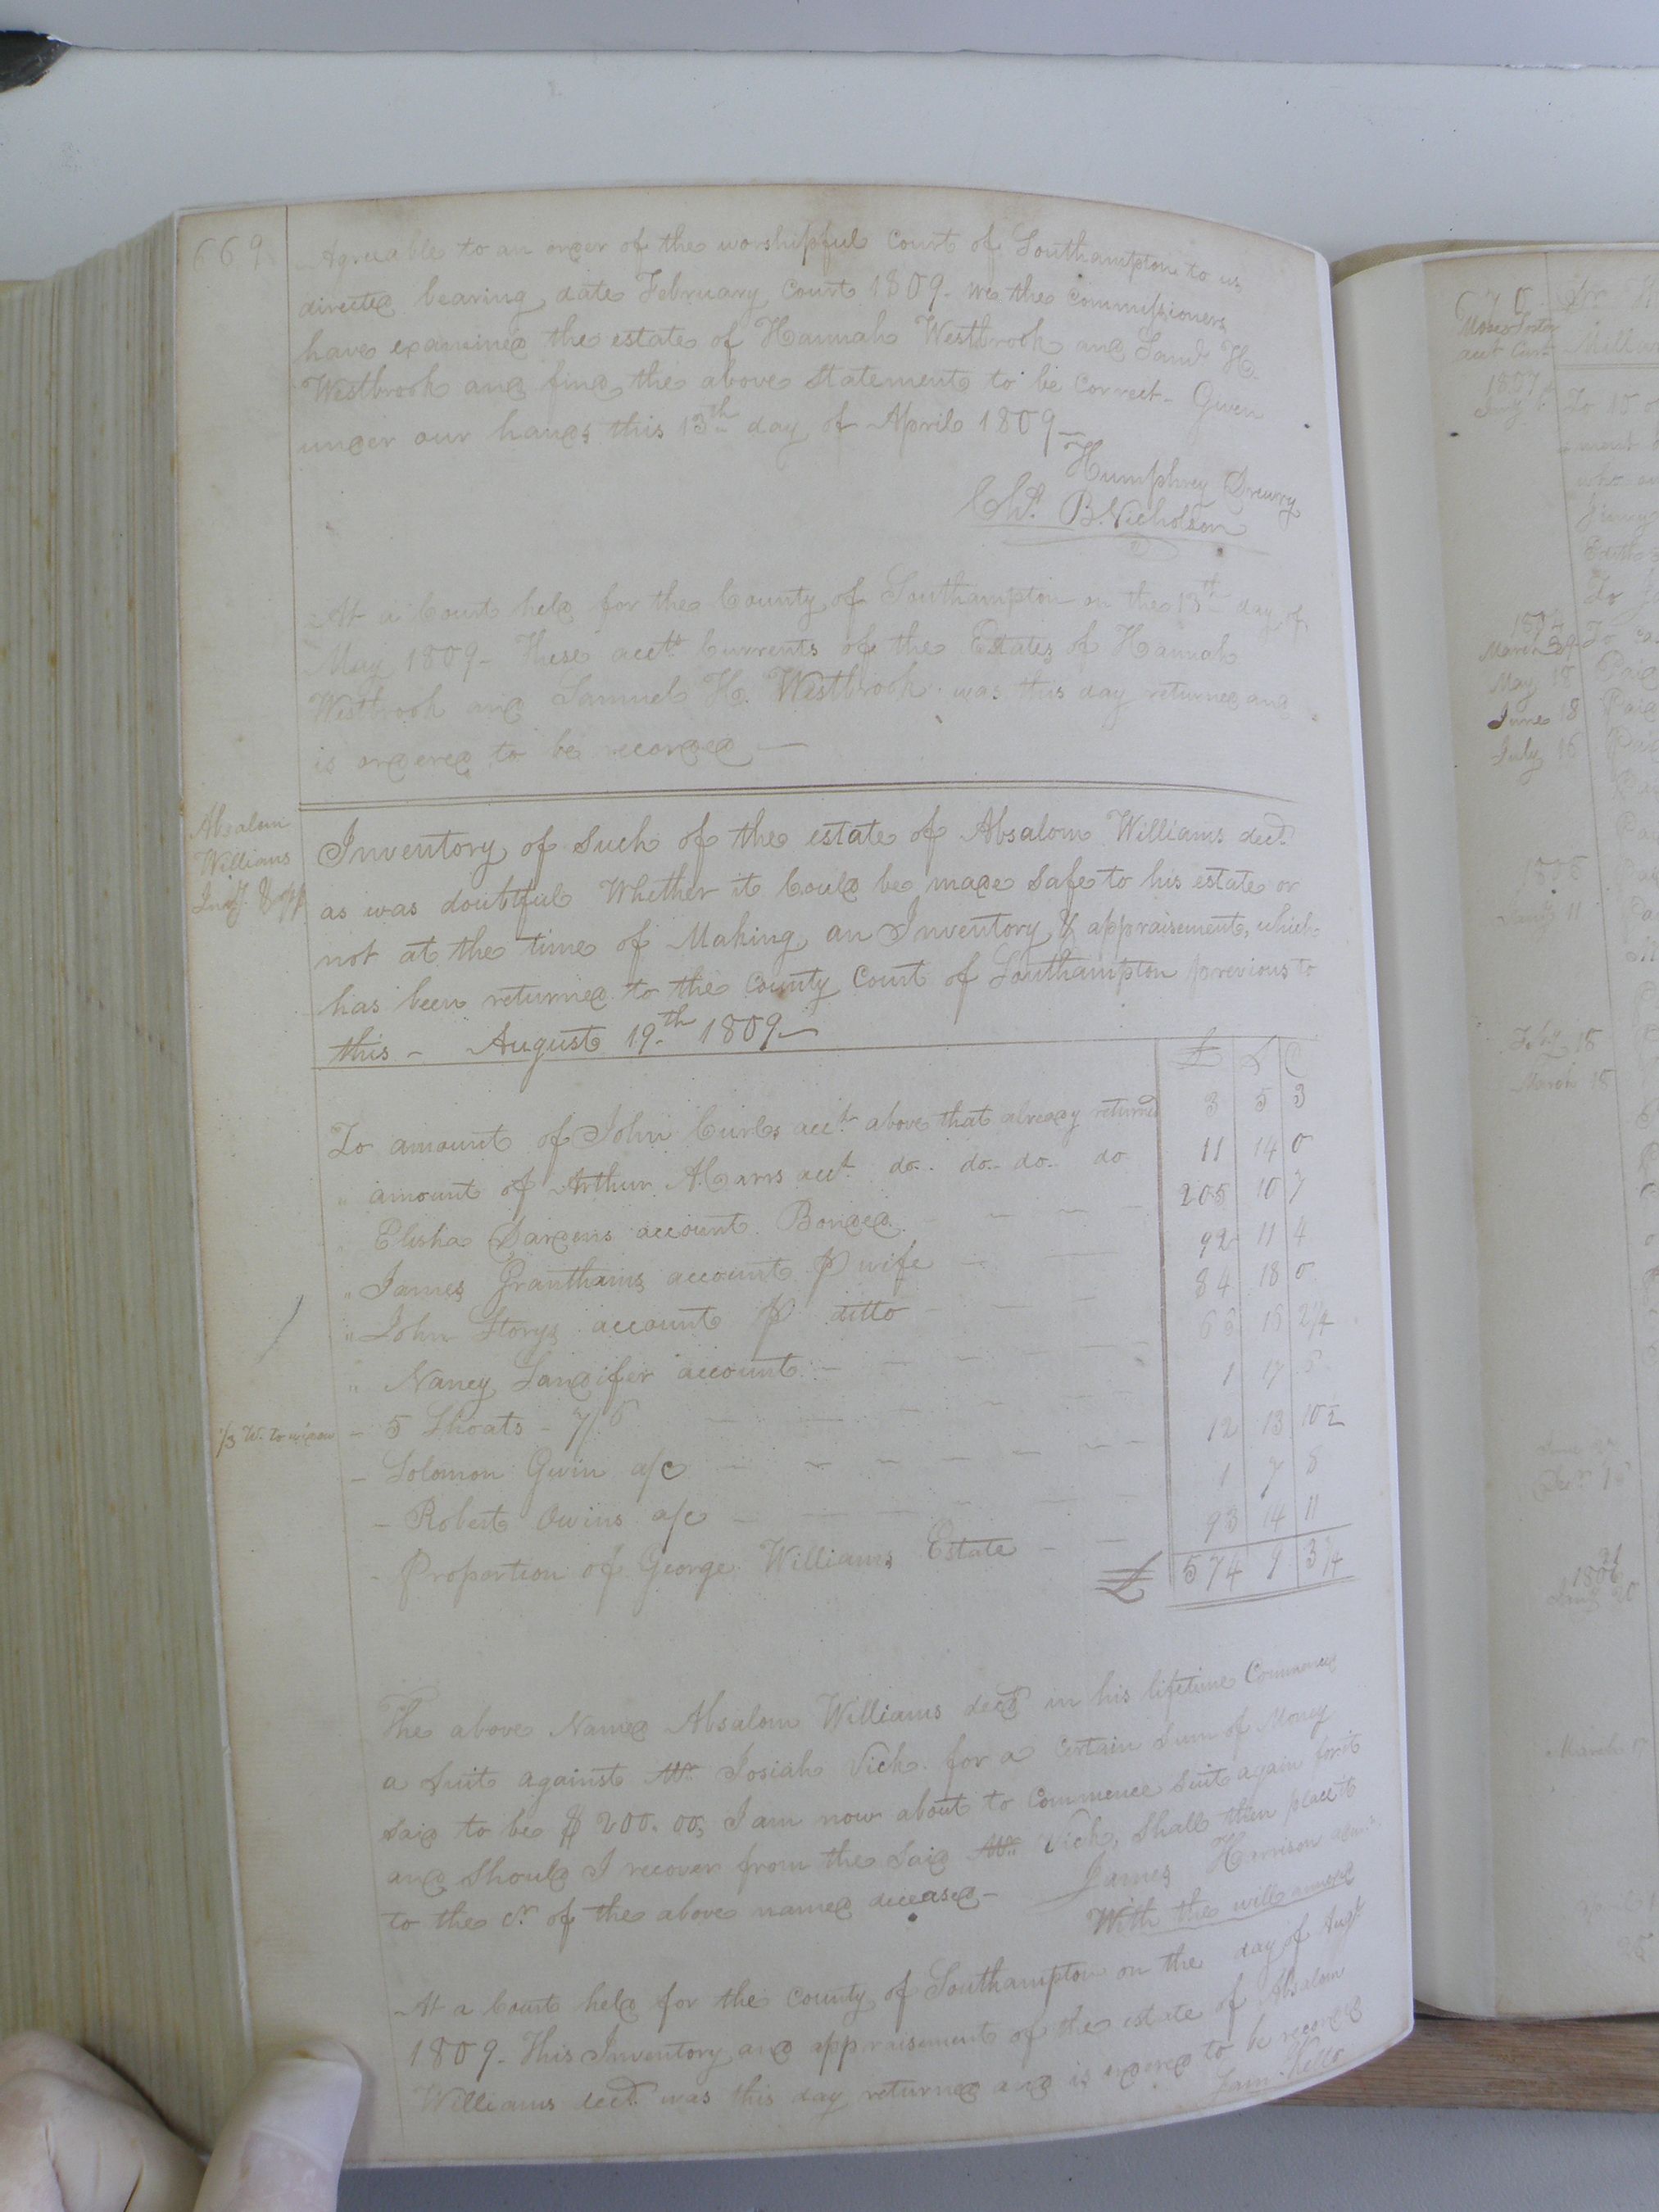 669
Agreeable to an order of the worshipful Court of Southampton to us
directed bearing date February Court 1809- We the Commissioners
have examined the estate of Hannah Westbrook and Saml. H.
Westbrook and find the above Statements to be Correct- Given
under our hands this 13th day of April 1809-
Humphrey Drewry
Chs. B. Nicholson
At a Court held for the County of Southampton on the 13th day of
May 1809- These accts. Currents of the Estates of Hannah
Westbrook and Samuel H. Westbrook was this day returned and
is ordered to be recorded-
Absalom
Williams
Invy. & app
Inventory of Such of the estate of Absalom Williams decd.
as was doubtful Whether it Could be made Safe to his estate or
not at the time of Making an Inventory & appraisement, which
has been returned to the County Court of Southampton previous to
this - August 19th 1809-
£ S D
To amount of John Curls acct. above that already returned 3 5 3
" amount of Arthur acct. do.. do.. do.. do 11 14 0
" Elisha Dardens account Bonded - - - 205 10 7
" James Granthams account p wife - - 92 11 4
" John Storys account p ditto - - - 84 18 0
" Nancy Sandifer account - - - 66 16 2 1/4
1/3 W. to widow
- 5 Shoats - 7/6 - - - 1 17 6
- Solomon Gwin a/c - - - 12 13 10 1/2
- Robert Owins a/c - - - 1 7 8
- Proportion of George Williams Estate - - 93 14 11
£ 574 9 3 3/4
The above Named Absalom Williams decd in his lifetime Commenced
a Suit against Mr. Josiah Vick for a Certain Sum of Money
Said to be $ 200.00, I am now about to Commence Suit again for it
and Should I recover from the Said Mr. Vick, Shall then place it
to the Cr. of the above named deceased- James Harrison admr.
With the will annexed
At a Court held for the County of Southampton on the day of Augt.
1809- This Inventory and appraisement of the estate of Absalom
Williams decd. was this day returned and is ordered to be recorded
Sam. Kello
670
acct Curt
1807
To 15
1804
March 29
May 18 Paid
June 18 Paid
July 16 Paid
Feby 18
March 18